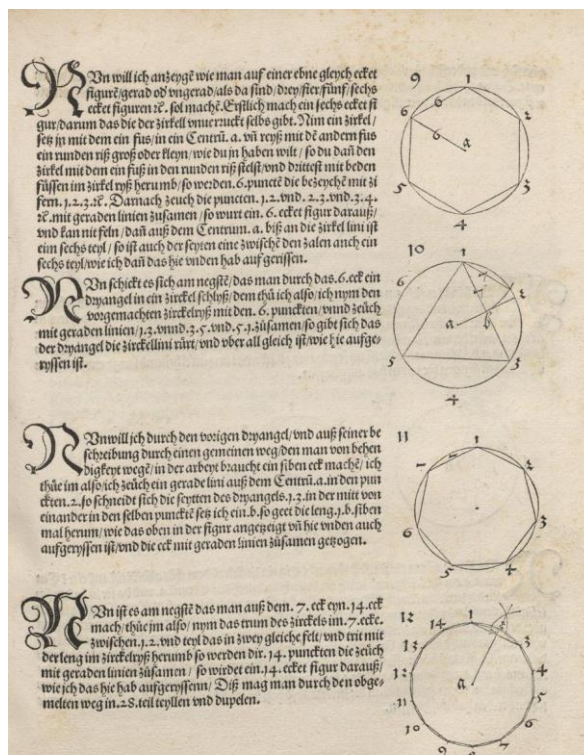 NUn will ich anzeygē wie man auf einer ebne gleych ecket
figurē/gerad od ungerad/als da sind/drey/fier/fünf/sechs
ecket figuren ꝛc. sol machē. Erstlich mach ein sechs ecket fi
gur/darum das die der zirkell unuerruckt selbs gibt. Nim ein zirkel/
setz jn mit dem ein fus/in ein Centrū. a. vn̄ reyß mit dē andern fus
ein runden riß groß oder kleyn/wie du jn haben wilt/so du dan̄ den
zirkel mit dem ein fuß in den runden riß stelst/vnd drittest mit beden
füssen im zirkel ryß herumb/so werden. 6. punctē die bezeychē mit zi
fern. 1. 2. 3. ꝛc. Darnach zeuch die puncten. 1. 2. vnd. 2. 3. vnd. 3. 4.
ꝛc. mit geraden linien zusamen/so wurt ein. 6. ecket figur darauß/
vnd kan nit feln/dan̄ auß dem Centrum. a. biß an die zirkel lini ist
eim sechs teyl/so ist auch der seyten eine zwischē den zalen auch ein
sechs teyl/wie ich dan̄ das hie vnden hab auf gerissen.
NUn schickt es sich am negstē/das man durch das. 6. eck ein
dryangel in ein zirckel schlyß/dem thů ich also/ich nym den
vorgemachten zirckelryß mit den. 6. punckten/vnnd zeüch
mit geraden linien/1. 3. vnnd. 3. 5. vnd. 5. 1. zůsamen/so gibt sich das
der dryangel die zirckellini rürt/vnd vber all gleich ist/wie hie aufge-
ryssen ist.
NUn will ich durch den vorigen dryangel/vnd auß seiner be
schreibung durch einen gemeinen weg/den man von behen
digkeyt wegē/in der arbeyt braucht ein siben eck machē/ich
thůe im also/ich zeüch ein gerade lini auß dem Centrū. a. in den pun
ckten. 2. so schneidt sich die seytten des dryangels. 1. 3. in der mitt von
einander in den selben punckte setz ich ein. b. so geet die leng. 1. b. siben
mal herum/wie das oben in der figur angetzeigt vn̄ hie vnden auch
aufgeryssen ist/vnd die eck mit geraden linien zůsamen getzogen.
NUn ist es am negstē das man auß dem. 7. eck eyn. 14. eck
mach/thůe jm also/nym das trum des zirckels im. 7. ecke.
zwischen. 1. 2. vnd teyl das in zwey gleiche felt/vnd trit mit
der leng im zirckelryß herumb so werden dir. 14. punckten die zeüch
mit geraden linien zůsamen/so wirdet ein. 14. ecket figur darauß/
wie ich das hie hab aufgeryssenn/Diß mag man durch den obge-
melten weg in. 28. teil teyllen vnd dupelen.
9
1
2
3
4
5
6
6
6
a
10
1
2
3
4
5
7
a
b
11
1
2
3
4
5
6
7
7
12
1
2
3
4
5
6
7
8
9
10
11
12
13
14
a